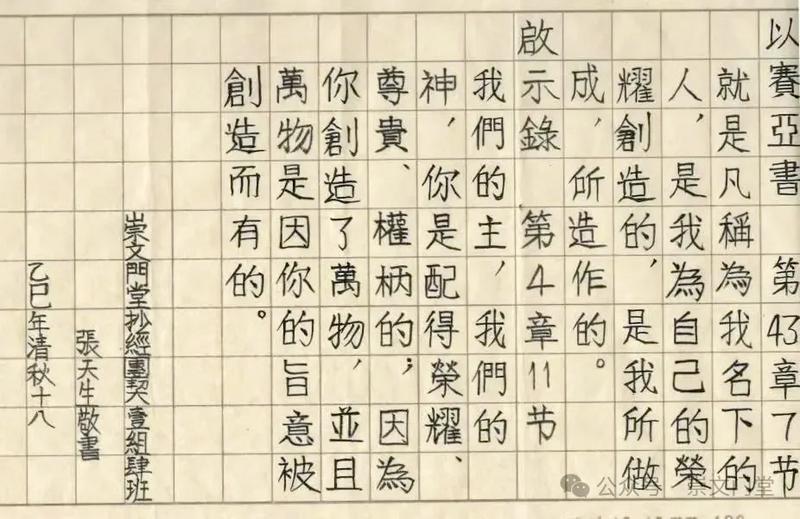 以賽亞書 第43章7节
就是凡稱為我名下的
人，是我為自己的榮
耀創造的，是我所做
成，所造作的。
啟示錄 第4章11节
我們的主，我們的
神，你是配得榮耀、
尊貴、權柄的；因為
你創造了萬物，並且
萬物是因你的旨意被
創造而有的。
崇文門堂抄經團契壹組肆班
張天生敬書
乙巳年清秋十八
公众号·崇文门堂